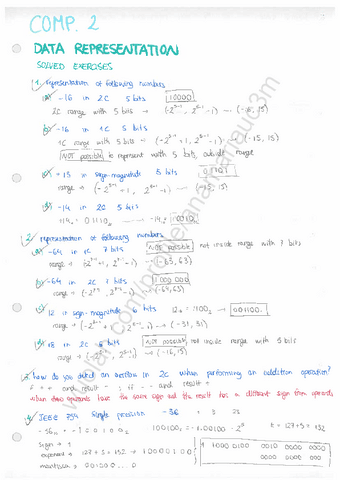 COMP. 2
DATA REPRESENTATION
SOLVED EXERCISES
1. representation of following numbers
a) -16 in 2C 5 bits 10000
2C range with 5 bits → (-2^5-1, 2^5-1 -1) → (-16, 15)
b) -16 in 1C 5 bits
1C range with 5 bits → (-2^5-1 +1, 2^5-1 -1) → (-15, 15)
NOT possible to represent with 5 bits, outside range
c) +13 in sign-magnitude 5 bits 01101
range → (-2^5-1 +1, 2^5-1 -1) → (-15, 15)
d) -14 in 2C 5 bits
+14 = 01110 → -14 = 10010
2. representation of following numbers
a) -64 in 1C 7 bits Not possible not inside range with 7 bits
range → (-2^7-1 +1, 2^7-1 -1) → (-63, 63)
b) -64 in 2C 7 bits 1000 000
range → (-2^7-1, 2^7-1 -1) → (-64, 63)
c) 12 in sign-magnitude 6 bits 12 = 1100 → 001100
range → (-2^6-1 +1, 2^6-1 -1) → (-31, 31)
d) 18 in 2C 5 bits Not possible not inside range with 5 bits
range → (-2^5-1, 2^5-1 -1) → (-16, 15)
3. how do you detect an overflow in 2C when performing an addition operation?
if + + and result - ; if - - and result +
when two operands have the same sign and the result has a different sign than operands
4. IEEE 754 single precision -36
-36 = -100100 100100 = -1.00100 · 2^5 E = 127+5 = 132
sign → 1
exponent → 127+5 = 132 → 10000100
mantissa → 00100...0
1 1000 0100 0010 0000 0000
0000 0000 000